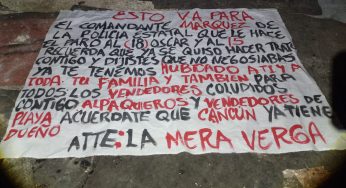 ESTO VA PARA
EL COMANDANTE MARQUEZ DE
LA POLICIA ESTATAL QUE LE HACE
EL PARO AL (18) OSCAR Y AL 15
RECUERDA QUE YA SE QUISO HACER TRATO
CONTIGO Y DIJISTES QUE NO NEGOSIABAS
YA TE TENEMOS HUBICADO ATI A
TODA TU FAMILIA Y TAMBIEN PARA
TODOS LOS VENDEDORES COLUDIDOS
CONTIGO ALPAQUEROS Y VENDEDORES DE
PLAYA ACUERDATE QUE CANCUN YA TIENE
DUEÑO
ATTE: LA MERA VERGA